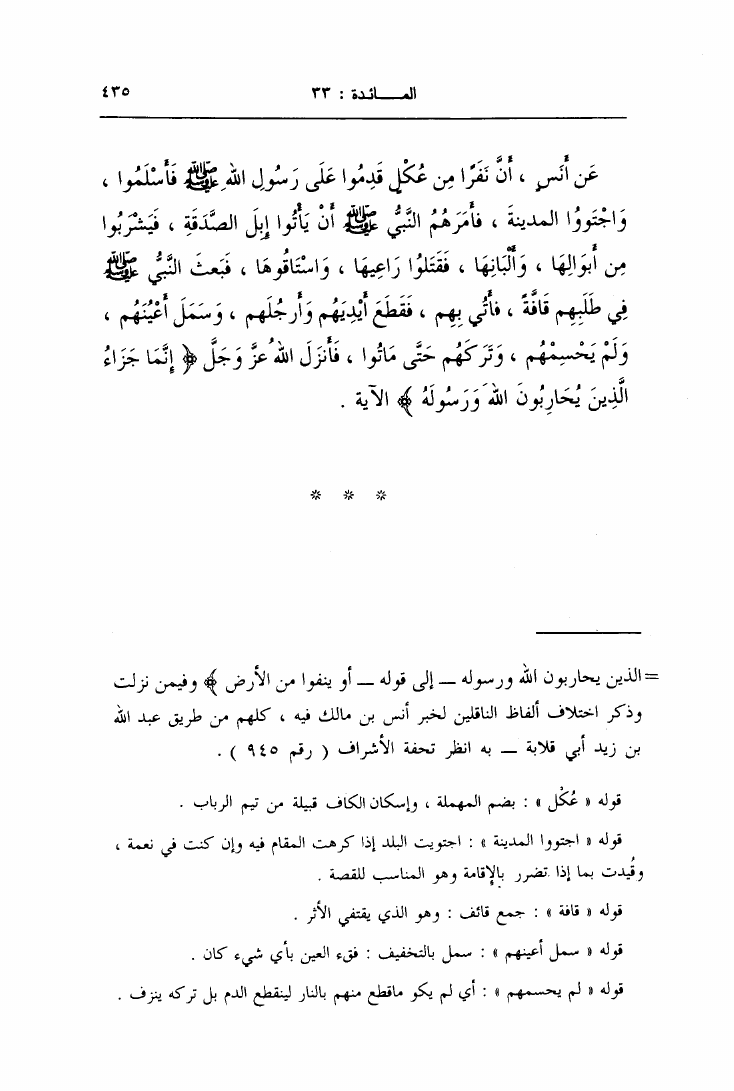 المـــائدة : ٣٣ ٤٣٥
عَن أَنَسٍ ، أَنَّ نَفَرًا مِن عُكْلٍ قَدِمُوا عَلَى رَسُولِ اللهِ ﷺ فَأَسْلَمُوا ،
وَاجْتَوَوُا المدينةَ ، فأَمَرَهُمُ النَّبيُّ ﷺ أَنْ يَأْتُوا إِبِلَ الصَّدَقَةِ ، فَيَشْرَبُوا
مِن أَبوَالِهَا ، وَأَلْبَانِهَا ، فَقَتَلُوا رَاعِيهَا ، وَاسْتَاقُوهَا ، فَبَعثَ النَّبيُّ ﷺ
فِي طَلَبِهِم قَافَةً ، فأُتُي بِهِم ، فَقَطَعَ أَيْدِيَهُم وَأَرجُلَهم ، وَسَمَلَ أَعْيُنَهُم ،
وَلَمْ يَحْسِمْهُم ، وَتَرَكَهُم حَتَّى مَاتُوا ، فَأَنزَلَ اللهُ عزَّ وَجَلَّ ﴿ إِنَّمَا جَزَاءُ
الَّذِينَ يُحَارِبُونَ اللهَ وَرَسُولَهُ ﴾ الآية .
* * *
= الذين يحاربون الله ورسوله ــ إلى قوله ــ أو ينفوا من الأرض ﴾ وفيمن نزلت
وذكر اختلاف ألفاظ الناقلين لخبر أنس بن مالك فيه ، كلهم من طريق عبد الله
بن زيد أبي قلابة ــ به انظر تحفة الأشراف ( رقم ٩٤٥ ) .
قوله « عُكْل » : بضم المهملة ، وإسكان الكاف قبيلة من تيم الرباب .
قوله « اجتووا المدينة » : اجتويت البلد إذا كرهت المقام فيه وإن كنت في نعمة ،
وقُيدت بما إذا تضرر بالإقامة وهو المناسب للقصة .
قوله « قافة » : جمع قائف : وهو الذي يقتفي الأثر .
قوله « سمل أعينهم » : سمل بالتخفيف : فقء العين بأي شيء كان .
قوله « لم يحسمهم » : أي لم يكو ماقطع منهم بالنار لينقطع الدم بل تركه ينزف .